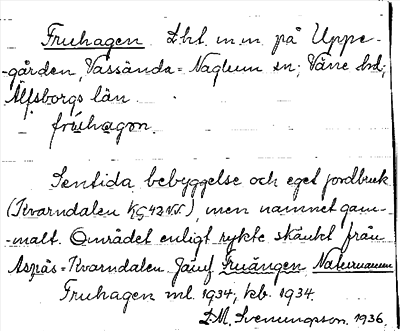 Fruhagen. Lht. m.m. på Uppe-
-gården, Vassända-Naglum sn; Väne hd;
Älfsborgs län
frúhagon.
Sentida bebyggelse och eget jordbruk
(Kvarndalen KG 42 NV.), men namnet gam-
-malt. Området enligt rykte skänkt från
Aspås-Kvarndalen. Jämf. Fruängen, Naturnamn
Fruhagen ml. 1934, kb. 1934.
D.M. Svenungson. 1936.